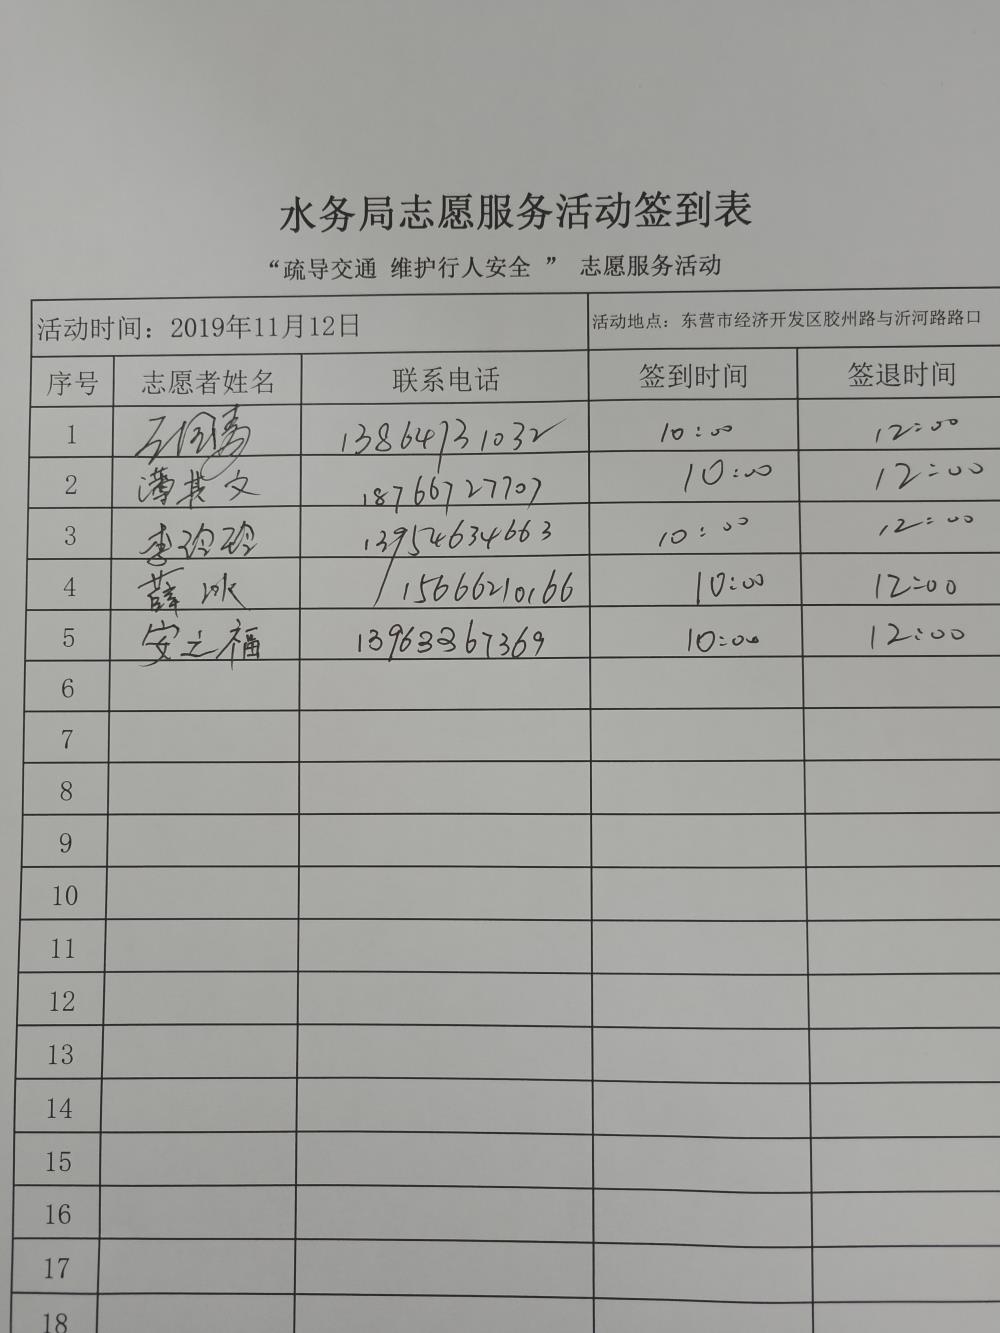 水务局志愿服务活动签到表
“疏导交通 维护行人安全 ” 志愿服务活动
活动时间：2019年11月12日 活动地点：东营市经济开发区胶州路与沂河路路口
序号 志愿者姓名 联系电话 签到时间 签退时间
1 13864731032 10:00 12:00
2 薄其文 18766727707 10:00 12:00
3 李玲玲 13954634663 10:00 12:00
4 薛冰 15666210166 10:00 12:00
5 安立福 13963367369 10:00 12:00
6
7
8
9
10
11
12
13
14
15
16
17
18